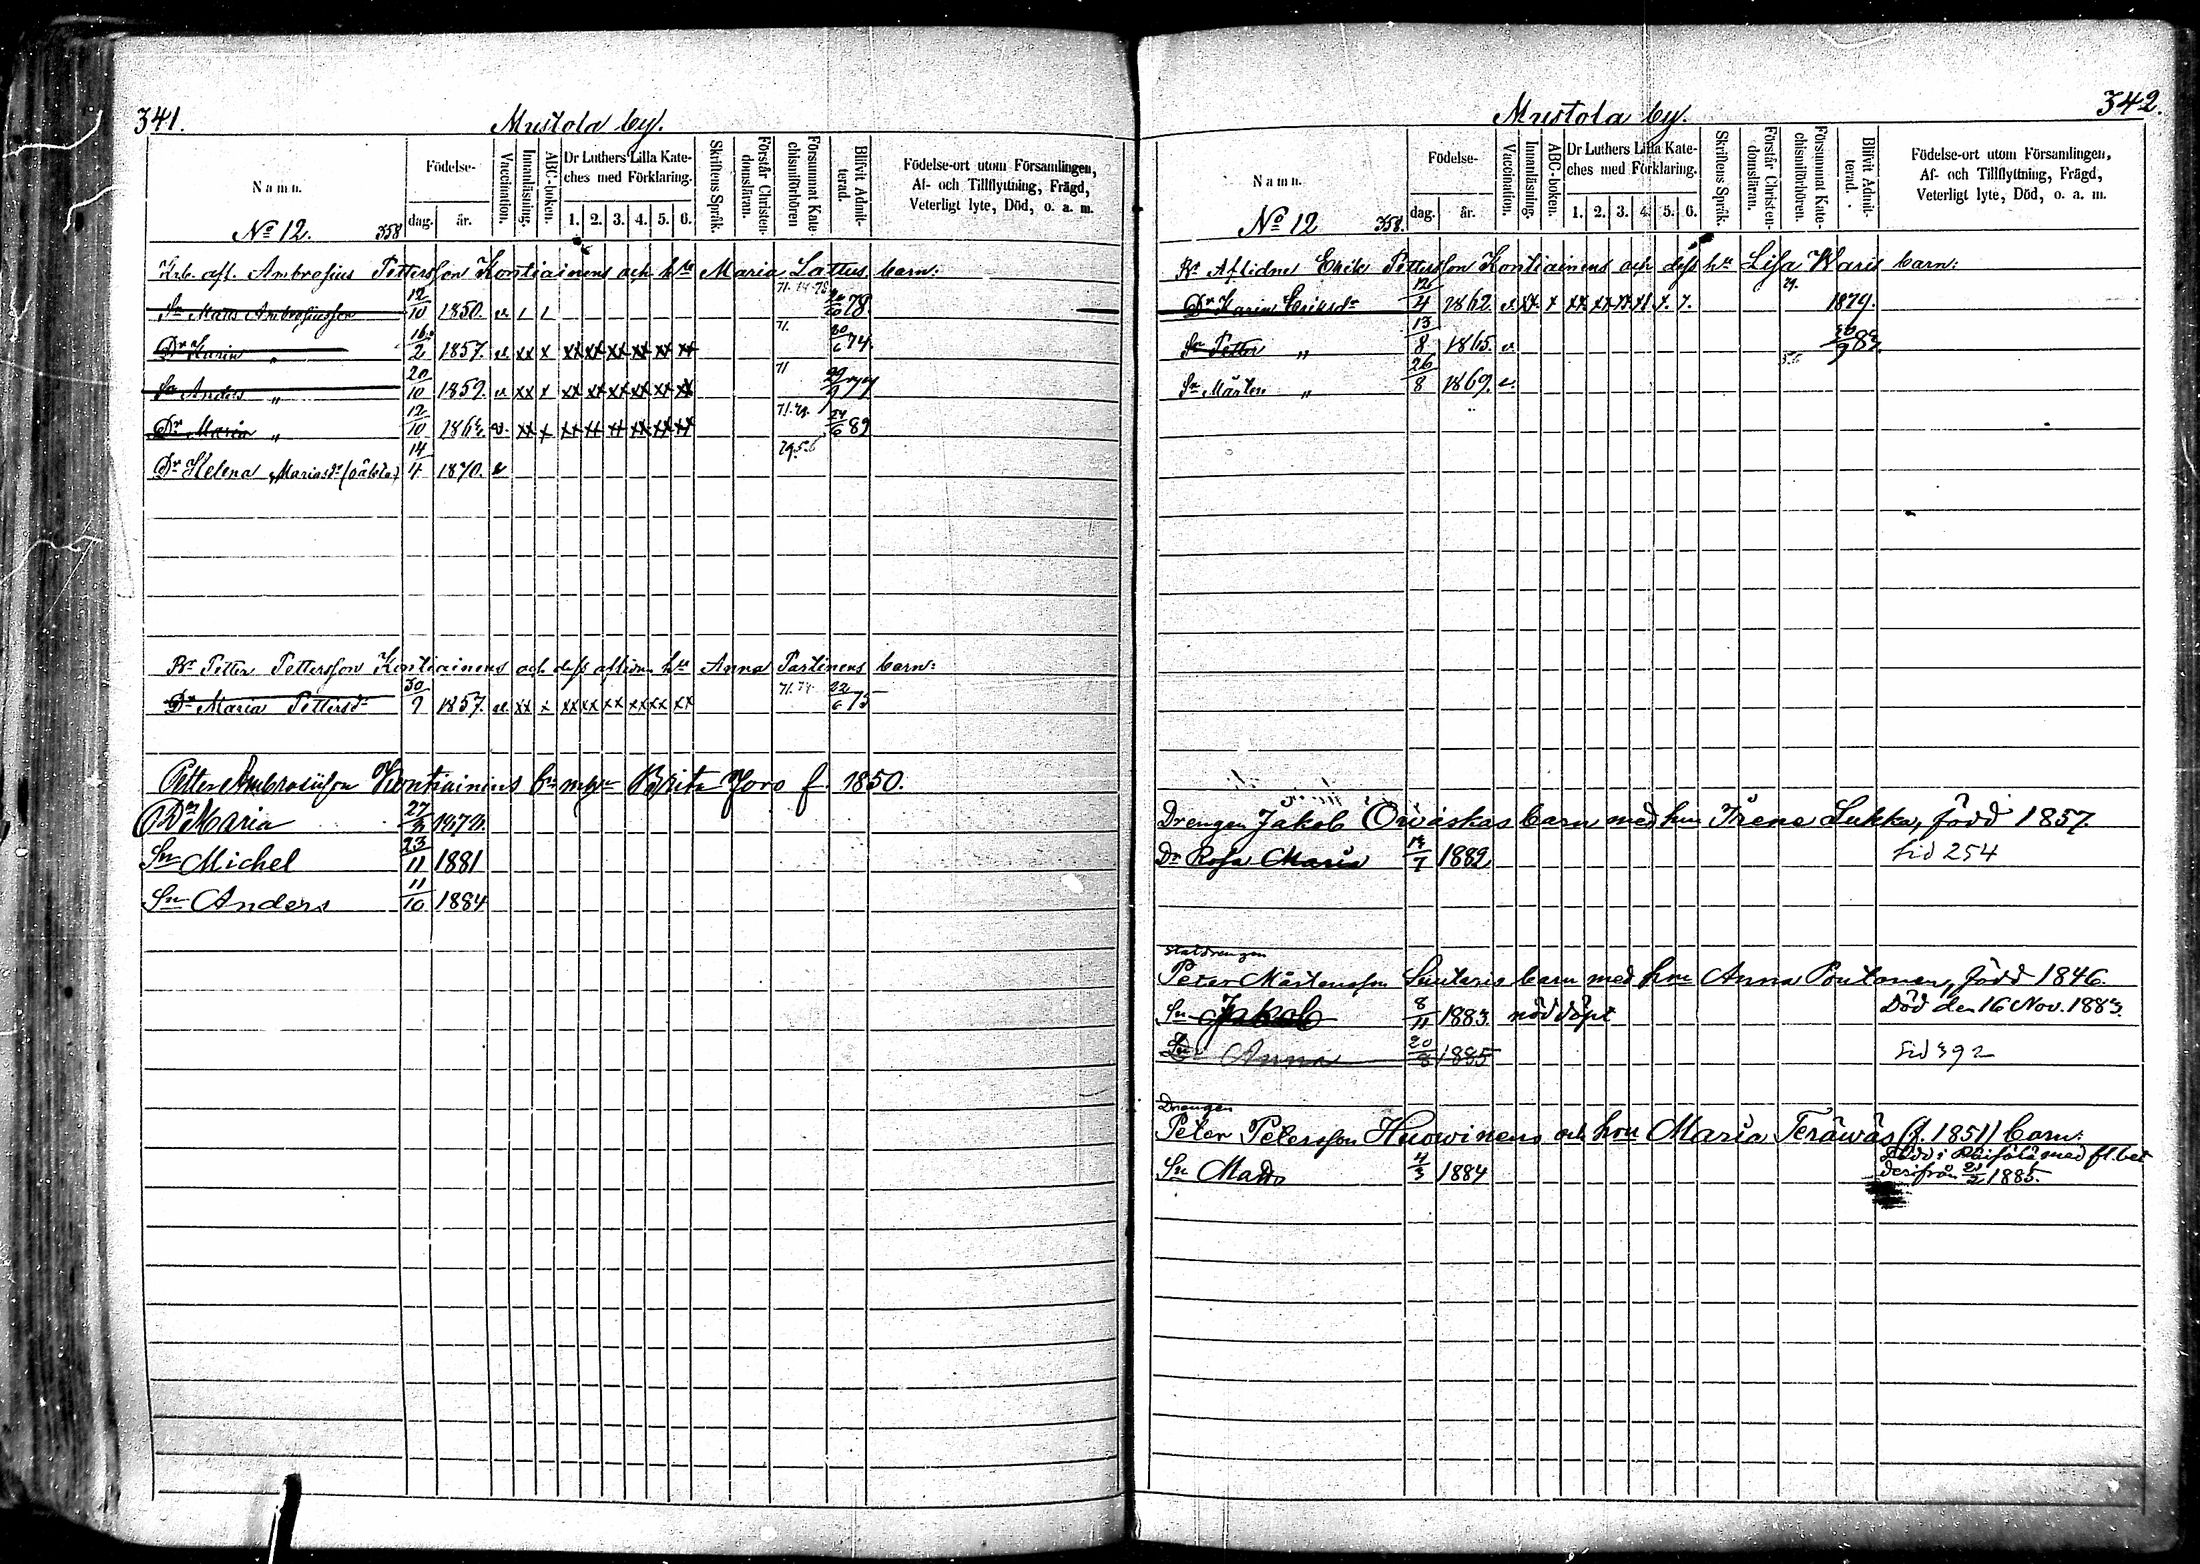 341.
Mustola by.
Namn.
Födelse-
dag.
år.
Vaccination.
Innanläsning.
ABC-boken.
Dr Luthers Lilla Kate-
ches med Förklaring.
1. 2. 3. 4. 5. 6.
Skriftens Språk.
Förstår Christen-
domsläran.
Försummat Kate-
chismiförhören
Blifvit Admit-
terad.
Födelse-ort utom Församlingen,
Af- och Tillflyttning, Frägd,
Veterligt lyte, Död, o. a. m.
No 12. 358
afl. Ambrosius Pettersson Kontiainens och hu Maria Lattus barn:
Sn Mats Ambrosiusson 12/10 1850. v 1 1 71. 74. 78. 20/10 78.
Dr Karin " 16/2 1857. v. xx x xx xx xx xx xx xx 71. 30/6 74
Sn Anders " 20/10 1859. v xx x xx xx xx xx xx xx 71 77
Dr Maria " 12/10 v. xx x xx xx xx xx xx xx 24/6 89
Dr Helena Mariasdr (oäkta) 14/4 1870. v
Petter Pettersson Kontiainens och dess aflidne hu Anna Partinens barn:
Dr Maria Pettersdr 30/9 1857. v. xx x xx xx xx xx xx xx 71. 74. 22/6 75
Petter Ambrosiison Kontiainins bn m hu Brita Joro f. 1850.
Dr Maria 27/3
Sn Michel 23/11 1881
Sn Anders 11/10 1884
342.
Mustola by.
Namn.
Födelse-
dag.
år.
Vaccination.
Innanläsning.
ABC-boken.
Dr Luthers Lilla Kate-
ches med Förklaring.
1. 2. 3. 4. 5. 6.
Skriftens Språk.
Förstår Christen-
domsläran.
Försummat Kate-
chismiförhören.
Blifvit Admit-
terad.
Födelse-ort utom Församlingen,
Af- och Tillflyttning, Frägd,
Veterligt lyte, Död, o. a. m.
No 12 358.
Aflidne Erik Pettersson Kontiainens och dess hu Lisa Waris barn:
Dr Karin Eriksdr 12/4 1862. v. xx x xx xx xx xx x. x. 1879.
Sn Petter " 13/8 1865. v
Sn Mårten " 26/8 1869. v.
Drengen Jakob Orwaskas barn med hun Irene Lukka, född 1857.
Dr Rosa Maria 1882 Sid 254
Statdrengen
Peter Mårtensson Suutaris barn med hru Anna Poutonen, född 1846.
Sn Jakob 8/11 1883. nöddöpt Död den 16 Nov. 1883.
Anna 20/8 1885 Sid 392
Drengen
Peter Petersson Huowinens och hru Maria Teräwäs (f. 1851) barn:
Sn Matts 4/3 1884 Född i Räisälä med fl.bet
derifrån 1885.